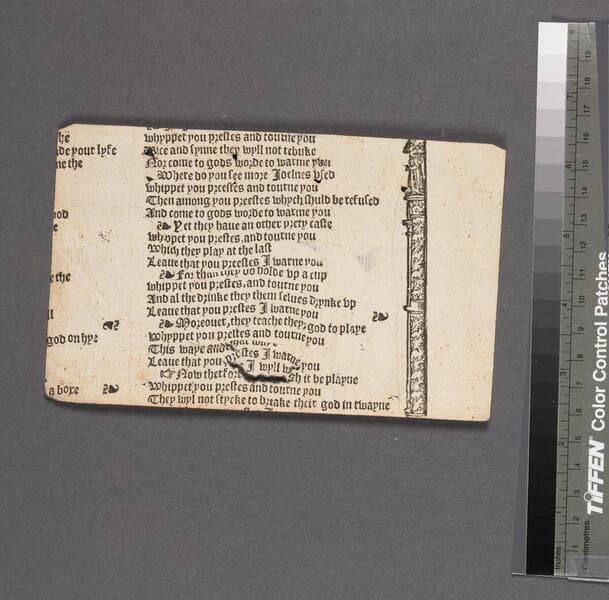 he
de your lyfe
ne the
ood
e
e the
ll
god on hye
a boxe
whyppet you prestes and tourne you
Vice and synne they wyll not rebuke
Nor come to gods worde to warme you
Where do you see more Idelnes vsed
whippet you preestes and tourne you
Then among you preestes whych shuld be refused
And come to gods worde to warme you
Yet they haue an other prety caste
whyppet you prestes, and tourne you
Which they play at the last
Leaue that you preestes I warne you
For than they do holde vp a cup
whippet you prestes, and tourne you
And al the drinke they them selues drynke vp
Leaue that you prestes I warne you
Moreouer, they teache theyr god to playe
Whyppet you prestes and tourne you
This waye and that waye
Leaue that you prestes I warne you
Now therfore I wyll it be playne
Whippet you prestes and tourne you
They wyl not stycke to breake their god in twayne
TIFFEN Color Control Patches
Inches
Centimetres